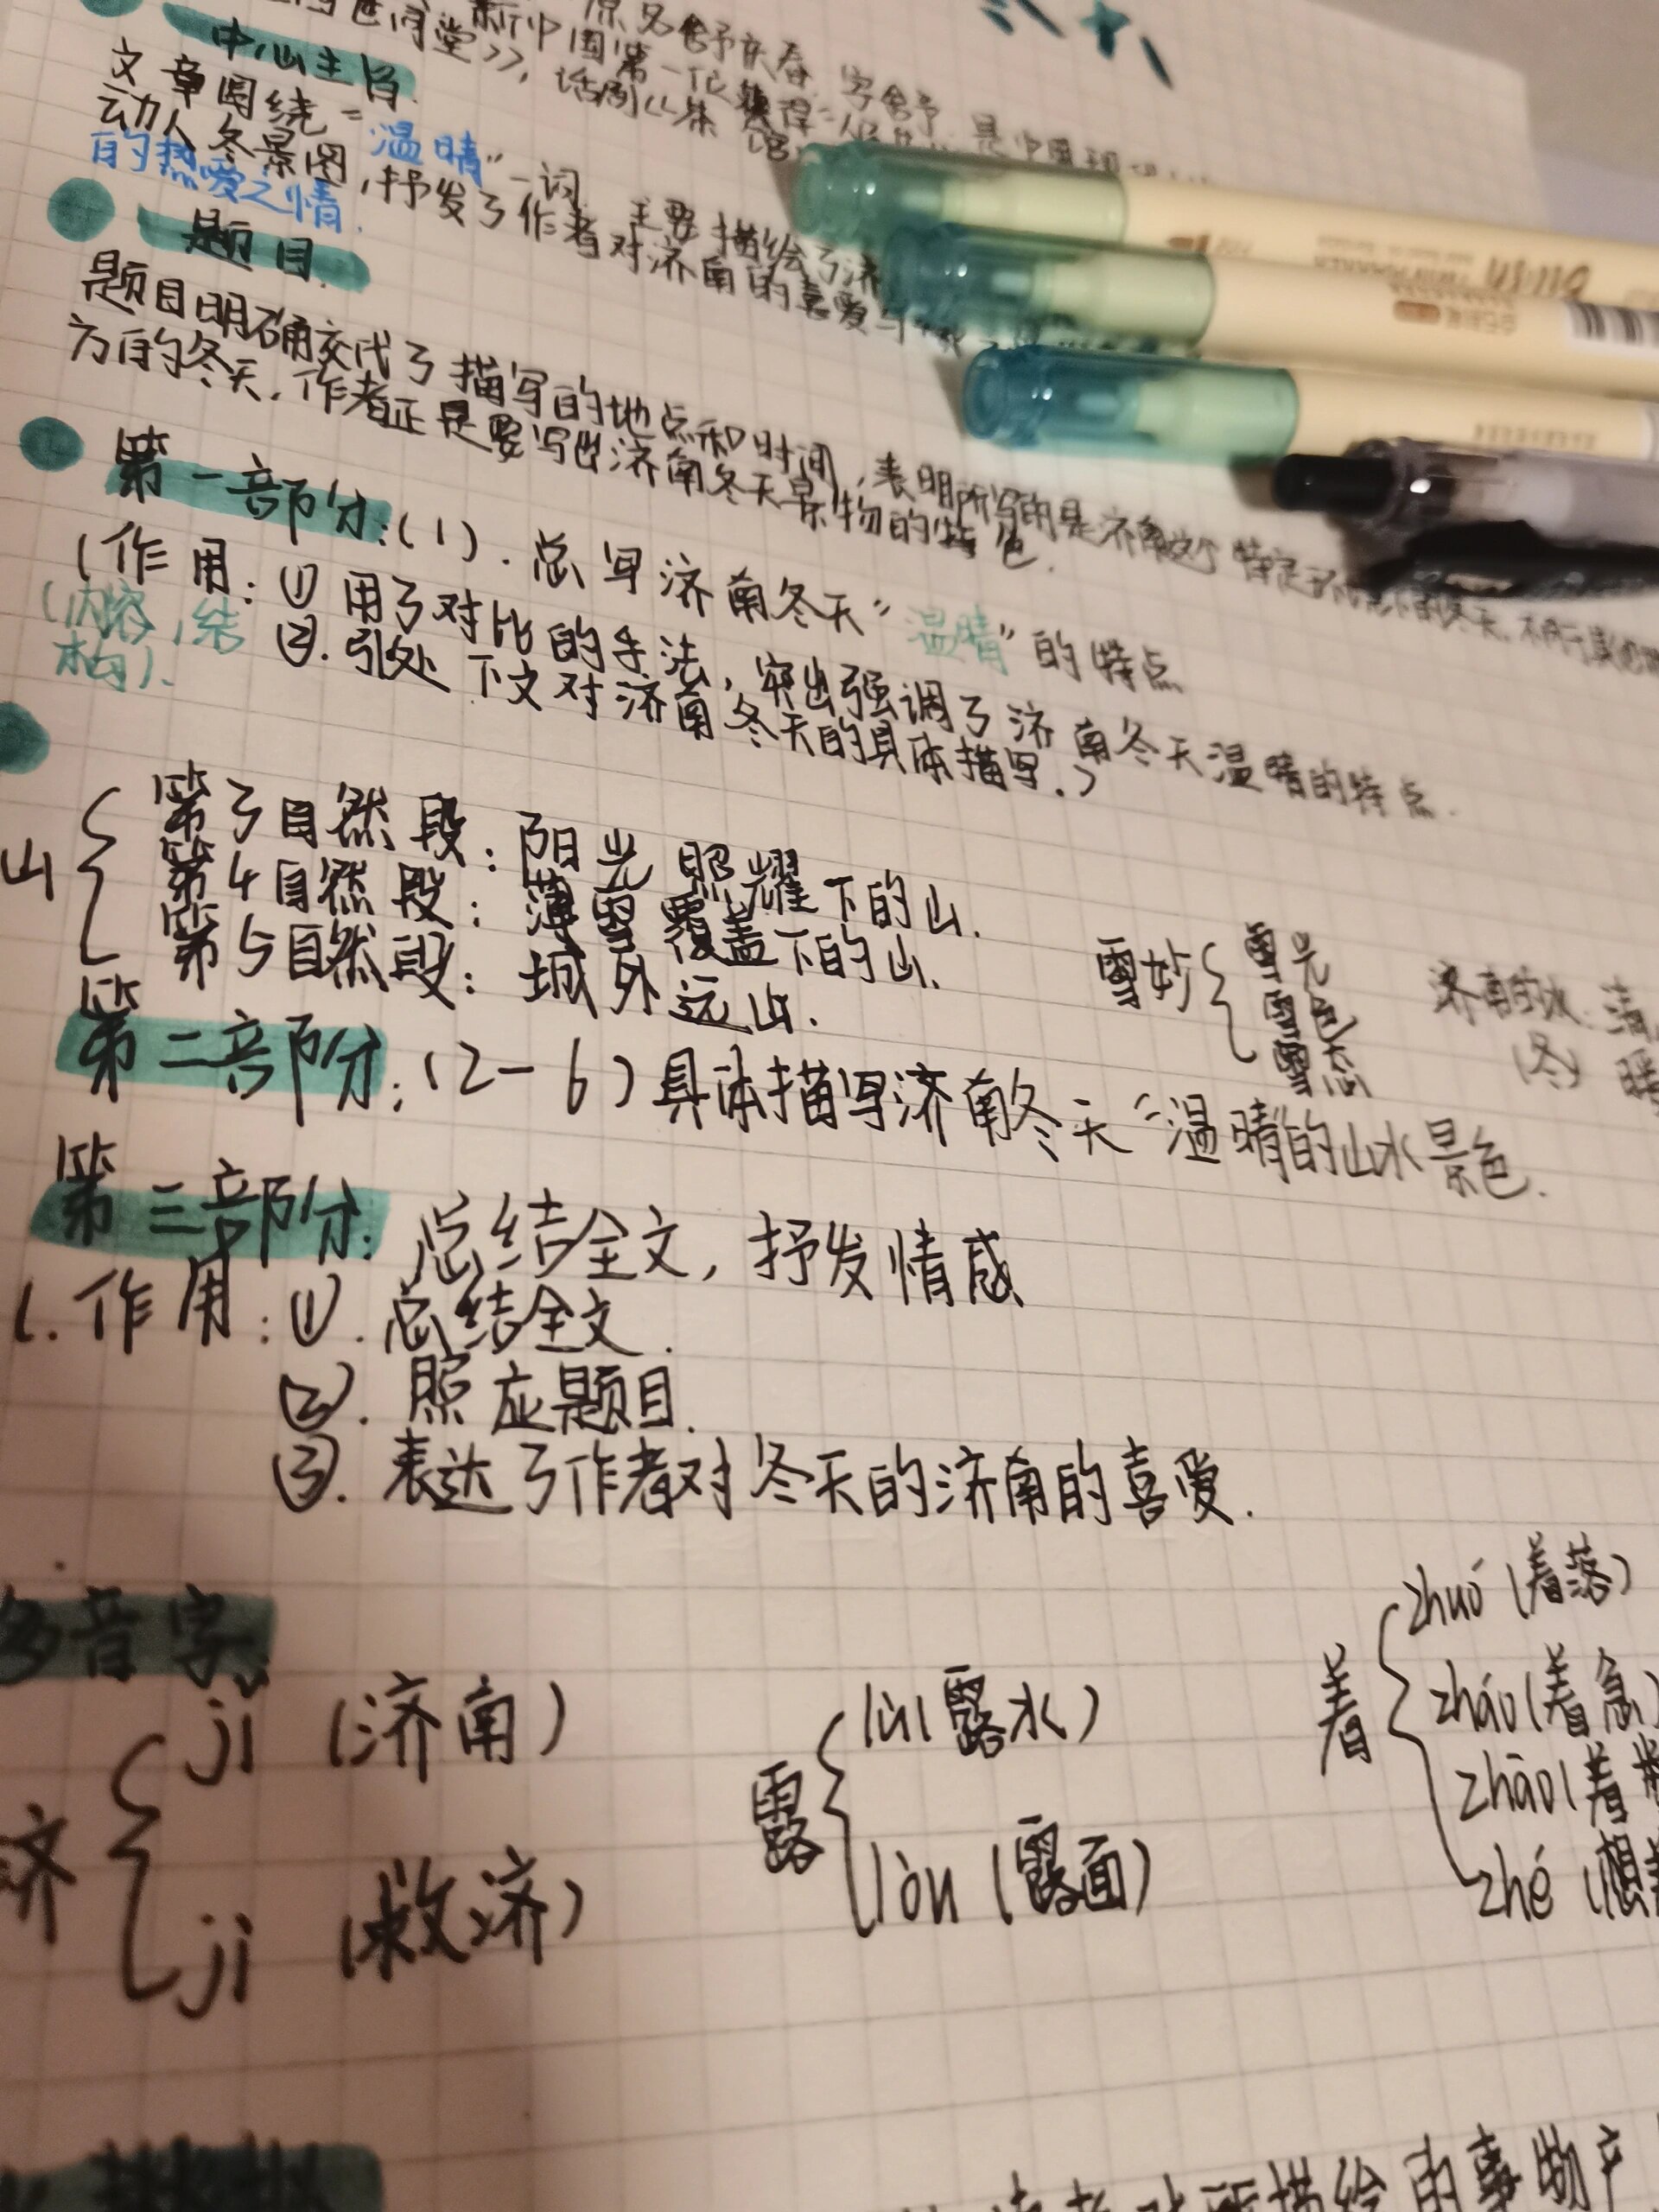 原名舒庆春,字舍予,是中国现
世同堂》,话剧《茶馆
新中国第一位获得"人民
中心主旨.
文章围绕"温晴"一词,主要描绘了济
动人冬景图,抒发了作者对济南的喜爱与
的热爱之情.
题目.
题目明确交代了描写的地点和时间,表明所写的是济南这个特定环境下的冬天,不同于其他地
方的冬天,作者正是要写出济南冬天景物的特色.
第一部分:(1).总写济南冬天"温晴"的特点
(作用:①用了对比的手法,突出强调了济南冬天温晴的特点.
(内容,结构).
②.引处下文对济南冬天的具体描写.)
山
第3自然段:阳光照耀下的山.
第4自然段:薄雪覆盖下的山.
第5自然段:城外远山.
雪妙
雪光
雪色
雪态
济南的水:清
(冬) 暖
第二部分:(2-6)具体描写济南冬天"温晴"的山水景色.
第三部分:总结全文,抒发情感
1.作用:①.总结全文.
②.照应题目.
③.表达了作者对冬天的济南的喜爱.
多音字
济
jǐ (济南)
jì (救济)
露
lù(露水)
lòu (露面)
着
zhuó (着落)
zháo(着急)
zhāo(着
zhe (想着
描绘的事物产